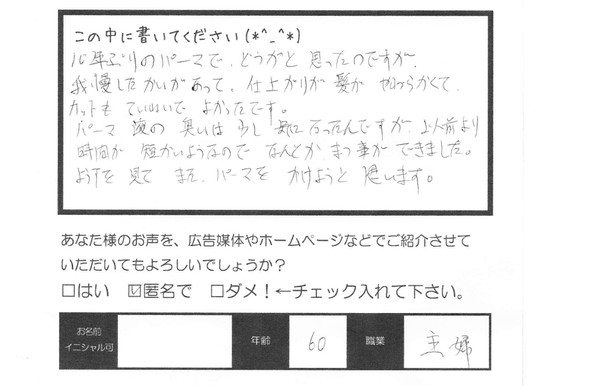 この中に書いてください(*^_^*)
10年ぶりのパーマで、どうかと思ったのですが、
我慢したかいがあって、仕上がりが髪がやわらかくて、
カットもていねいでよかったです。
パーマ液の臭いは少し気になったんですが、以前より
時間が短かいようなのでなんとかまつ事ができました。
ようすを見てまた、パーマをかけようと思います。
あなた様のお声を、広告媒体やホームページなどでご紹介させて
いただいてもよろしいでしょうか?
□はい ☑匿名で □ダメ!←チェック入れて下さい。
お名前
イニシャル可
年齢 60 職業 主婦